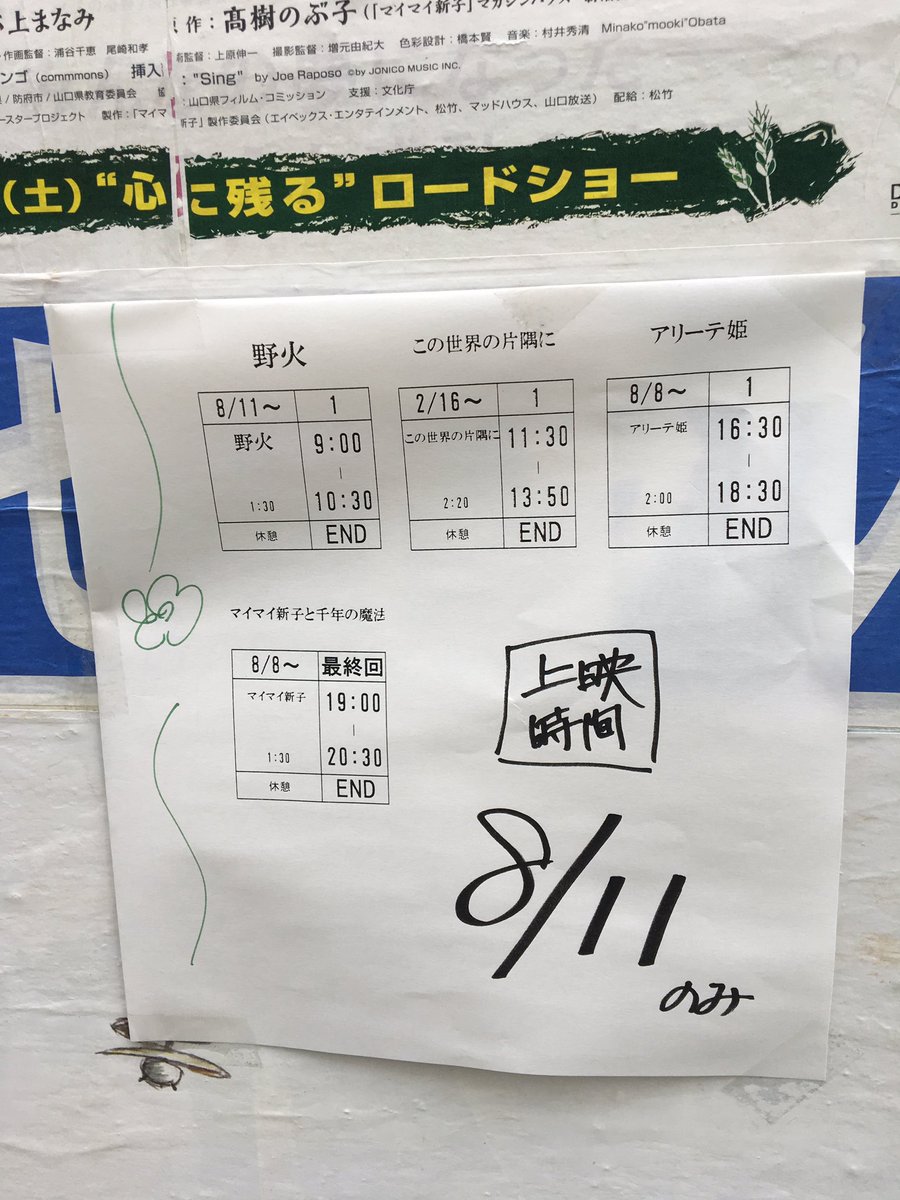 上まなみ
原作：髙樹のぶ子
作画監督：浦谷千恵 尾崎和孝
監督：上原伸一 撮影監督：増元由紀大 色彩設計：橋本賢 音楽：村井秀清 Minako"mooki"Obata
ンゴ（commmons） 挿入
："Sing" by Joe Raposo ©by JONICO MUSIC INC.
/防府市/山口県教育委員会 協
：山口県フィルム・コミッション 支援：文化庁
スタープロジェクト 製作：「マイマ
新子」製作委員会（エイベックス・エンタテインメント、松竹、マッドハウス、山口放送） 配給：松竹
(土)“心に残る”ロードショー
野火
8/11～ 1
野火 9:00
|
1:30 10:30
休憩 END
この世界の片隅に
2/16～ 1
この世界の片隅に 11:30
|
2:20 13:50
休憩 END
アリーテ姫
8/8～ 1
アリーテ姫 16:30
|
2:00 18:30
休憩 END
マイマイ新子と千年の魔法
8/8～ 最終回
マイマイ新子 19:00
|
1:30 20:30
休憩 END
上映
時間
8/11
のみ